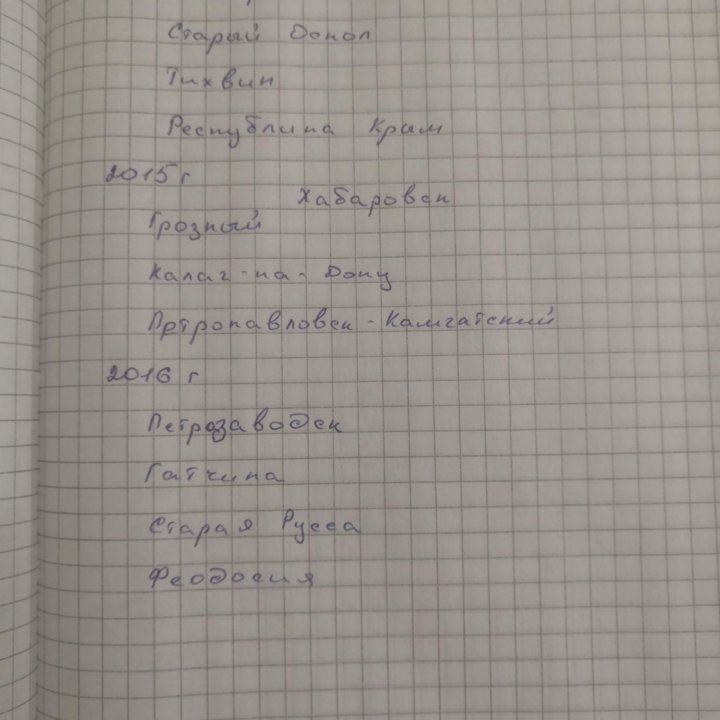 Старый Оскол
Тихвин
Республика Крым
2015 г
Хабаровск
Грозный
Калач-на-Дону
Петропавловск-Камчатский
2016 г
Петрозаводск
Гатчина
Старая Русса
Феодосия